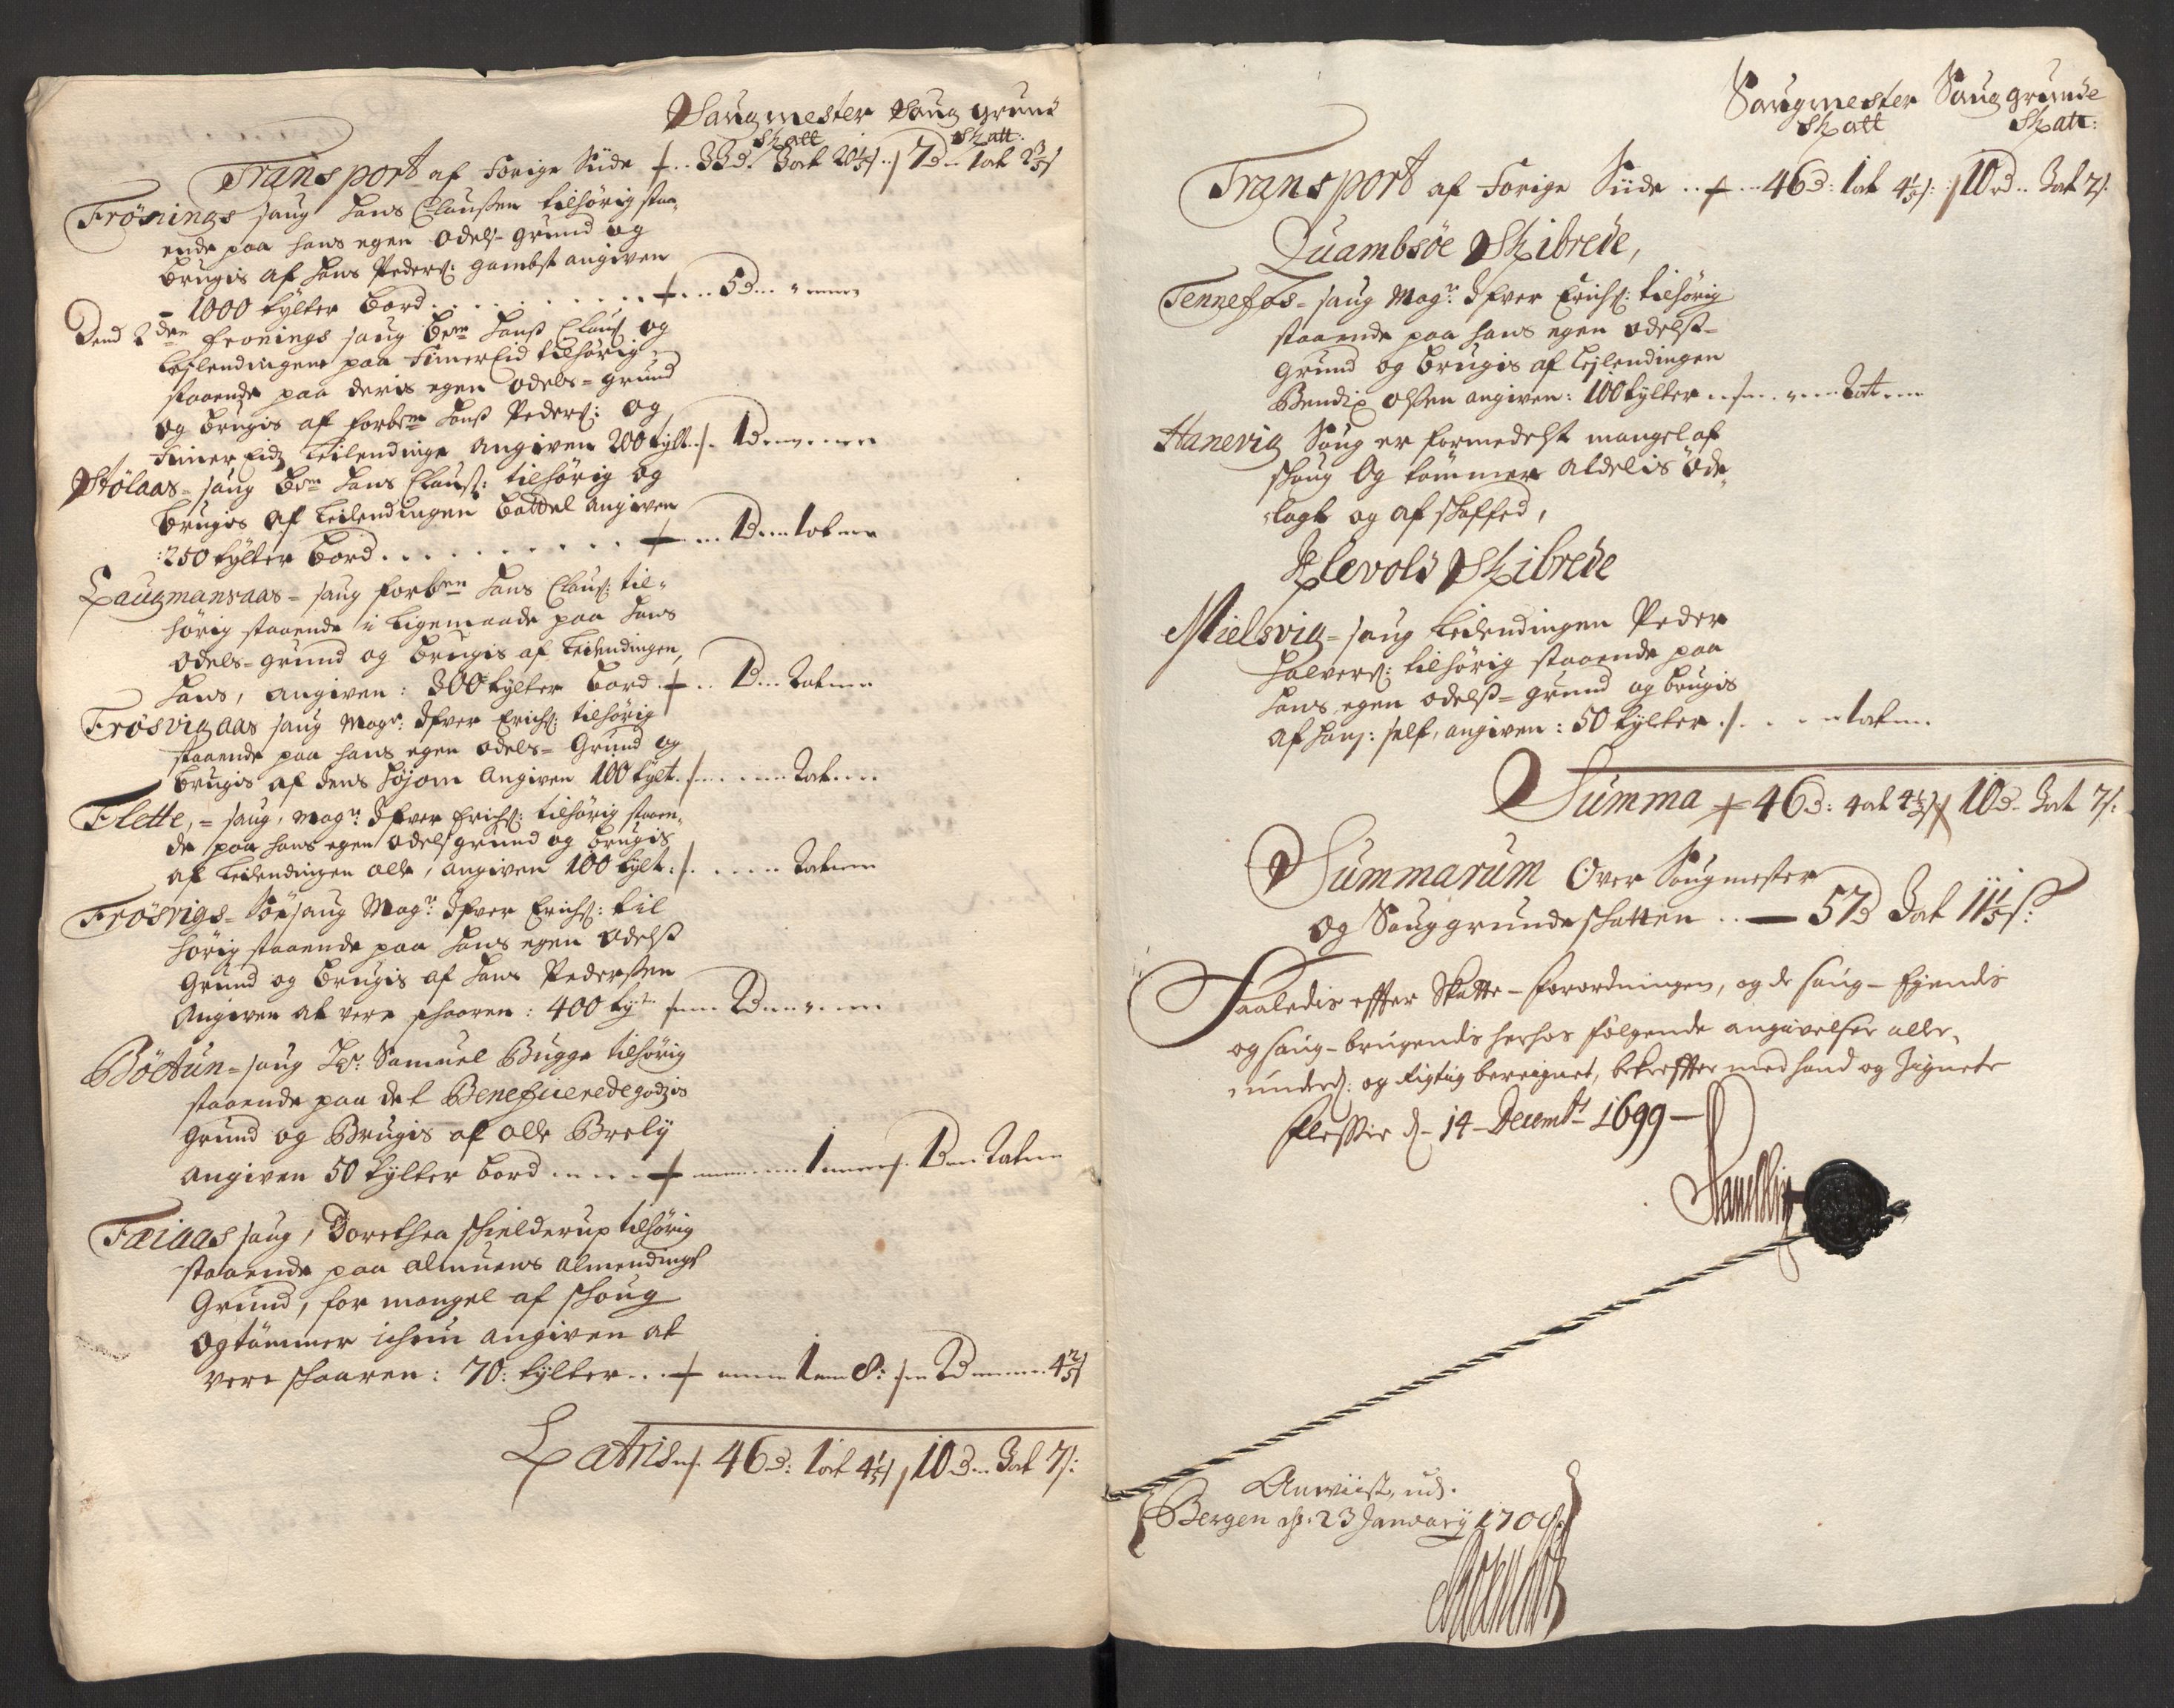 Saugmester Saug grund
Skatt Skatt:
Transport af Forige Siide 33d. 3ort 20 1/5 s 7d 1ort 2 3/5 s
Frönings saug Hans Claussen tilhörig staa-
ende paa hans egen odels-grund og
brugis af Hans Peders: gambst angiven
1000 tylter bord 5d
Dend 2den Fronings saug bem Hanss Claus og
Leylendingene paa Timereid tilhörig
staaende paa deris egen odels-grund
og brugis af forbem Hanss Peders: og
Timer Eidz Leilendinge angiven 200 tylt 1d
Stölaas-saug bem Hans Clauss: tilhörig og
brugis af Leilendingen Bottel angiven
:250 tylter bord 1d 1ort
Laugmansaas-saug forben Hans Claus: til-
hörig staaende i ligemaade paa Hans
odels-grund og brugis af Leilendingen,
Hans, angiven: 300 tylter bord 1d 2ort
Frösvigaas saug Magr: Ifver Erichs: tilhörig
staaende paa hans egen odels-Grund og
brugis af Jens angiven 100 tylt 2ort
Flette,-saug, Magr: Ifver Erichs: tilhörig staaen-
de paa hans egen odels grund og brugis
af Leilendingen Olle, angiven 100 tylt: 2ort
Frösvigs-Söe saug Magr: Ifver Erichs: til
hörig staaende paa hans egen odelss
Grund og brugis af Hans Pederssen
Angiven at vere skaaren: 400 tyt 2d
Böetun-saug Hr: Samuel Bugge tilhörig
staaende paa det Beneficeredegodzis
Grund og Brugis af Olle Brely
angiven 50 tylter bord 1 1d 2ort
Fæiaas saug, Dorethea Schielderup tilhörig
staaende paa almuens almendings
Grund, for mangel af skoug
og tömmer ichun angiven at
vere skaaren: 70: tylter 1 8: 2d 4 2/5 s
Latris 46d: 1ort 4 1/5 s 10d 3ort 7s:
Saugmester Saug grunde
Skatt Skatt:
Transport af Forige Siide 46d: 1ort 4 1/5 s: 10d 3ort 7s.
Quambsöe Skibrede,
Tennefos-saug Magr: Ifver Erichs: tilhörig
staaende paa hans egen odelss-
Grund og brugis af Leylendingen
Bendix Olssen angiven: 100 tylter 2ort
Hanevig Saug er formedelst mangel af
skoug Og tömmer aldelis öde-
lagt og af skaffed,
Klevold Skibrede
Mielsvig-saug Leilendingen Peder
Halvers: tilhörig staaende paa
hans egen odelss-grund og brugis
af Hans: self, angiven: 50 tylter 1ort
Summa 46d: 4ort 4 1/5 s 10d 3ort 7s:
Summarum Over Saugmester
og Sauggrunde skatten 57d 3ort 11 1/5 s:
Saaledis effter Skatte-forordningen, og de saug-Ejendis
og saug-brugendis herhos fölgende angivelser aller-
underd: og Rigtig beregnet, bekreffter med haand og Zignete
Flessie d- 14 Decembr 1699
Anviist, ud.
Bergen d. 23 January 1700.